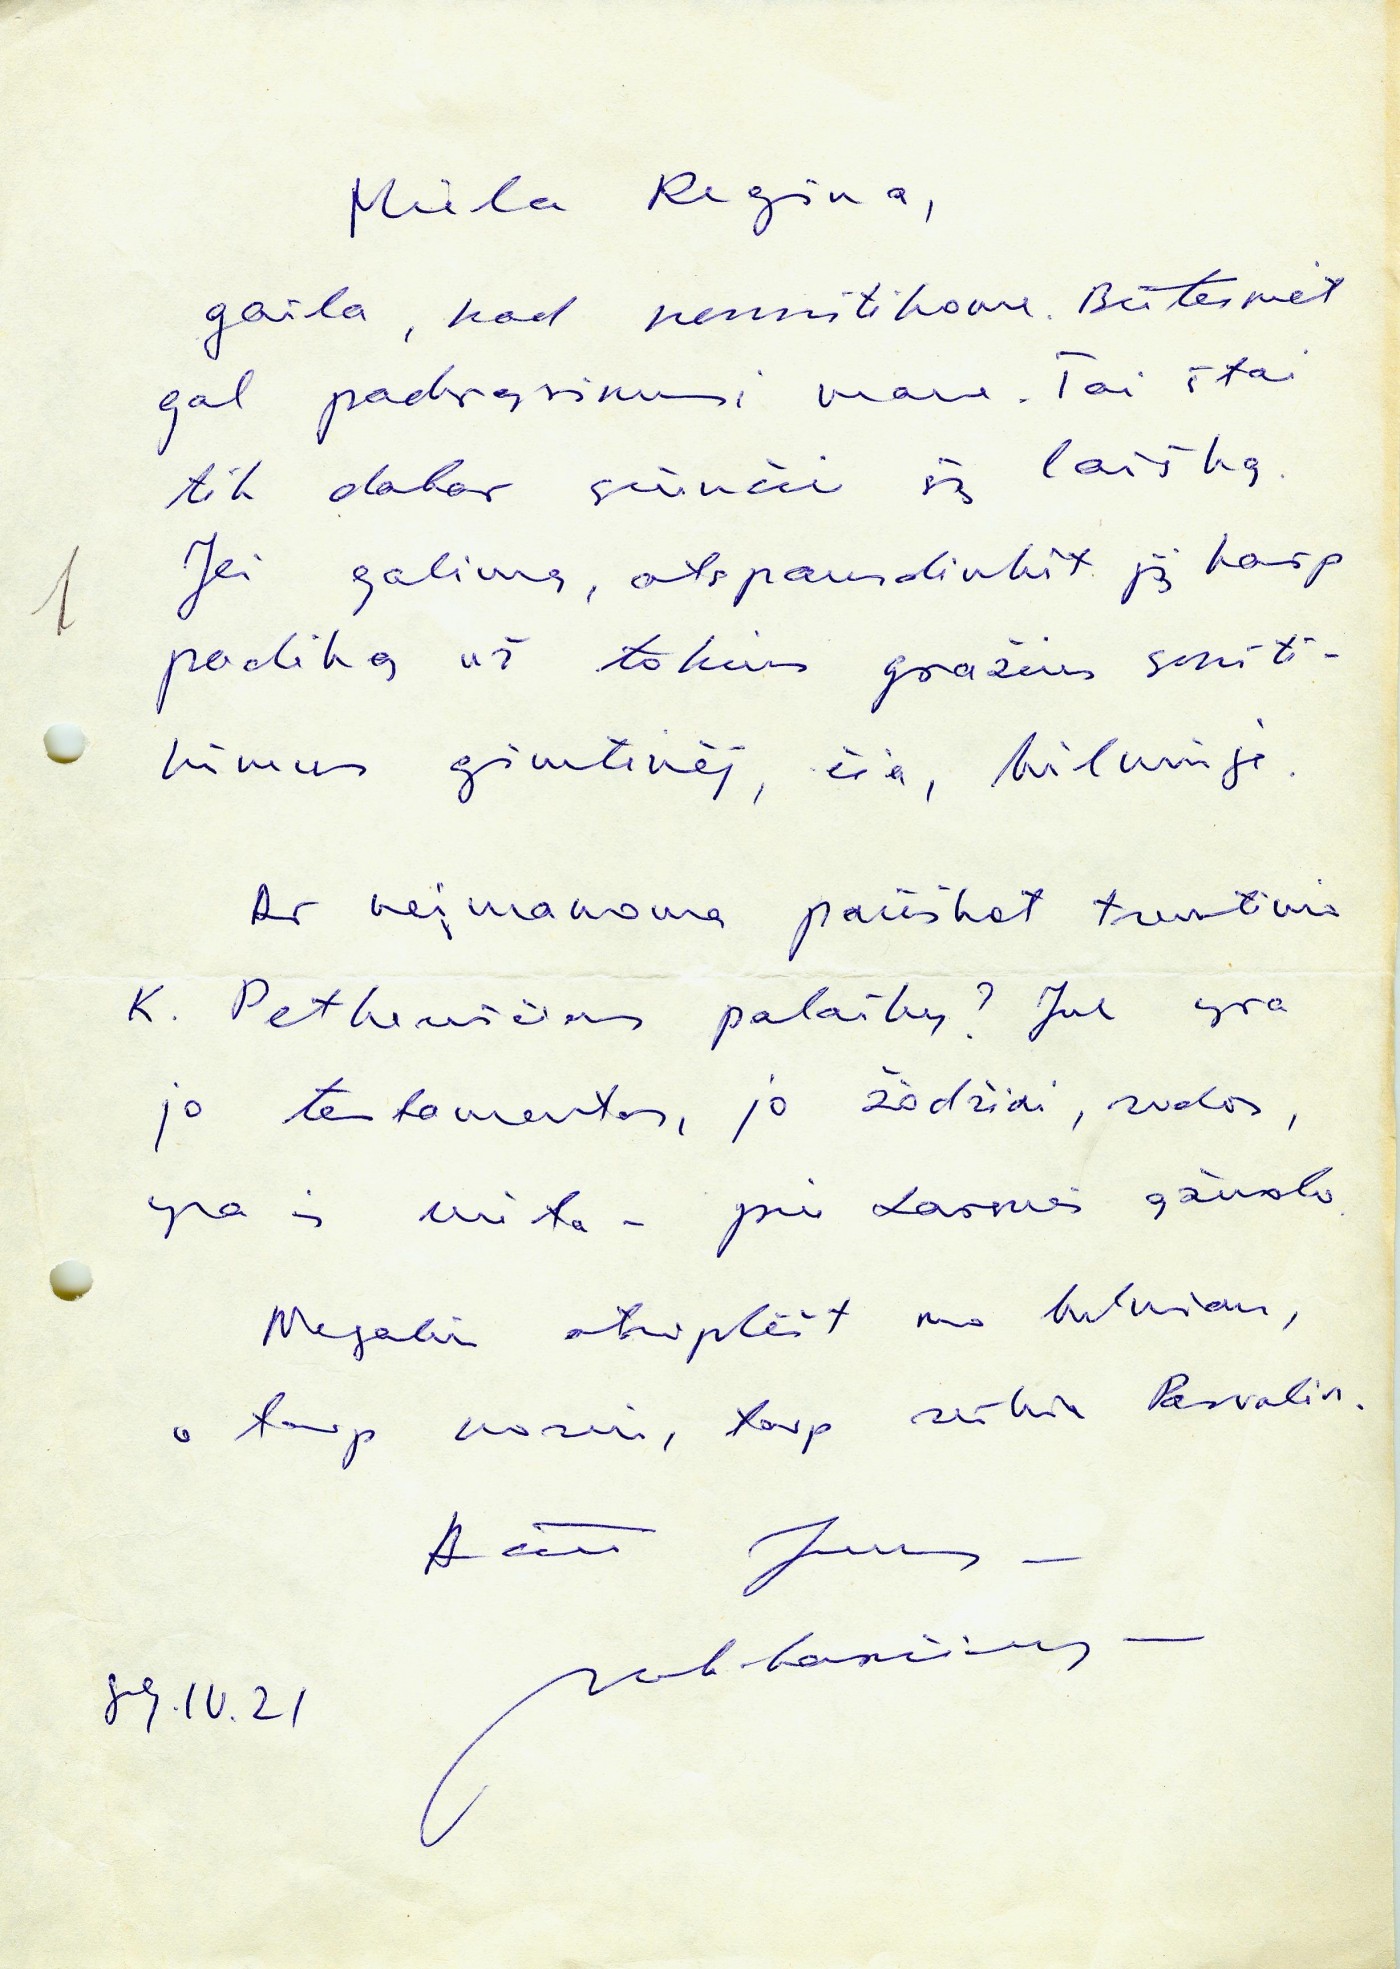 Miela Regina,
gaila, kad nesusitikome. Būtumėt
gal padrąsinusi mane. Tai štai
tik dabar siunčiu šį laišką.
Jei galima, atspausdinkit jį kaip
padėką už tokius gražius susiti-
kimus gimtinėj, čia, Vilniuje.
Ar neįmanoma parsivežt tremtinio
K. Petkevičiaus palaikų? Juk yra
jo testamentas, jo žodžiai, rodos,
yra ir vieta – prie ąžuolo.
Negaliu atsiplėšt nuo Vilniaus,
o taip noriu, taip reikia Pasvalin.
Ačiū Jums –
89.IV.21